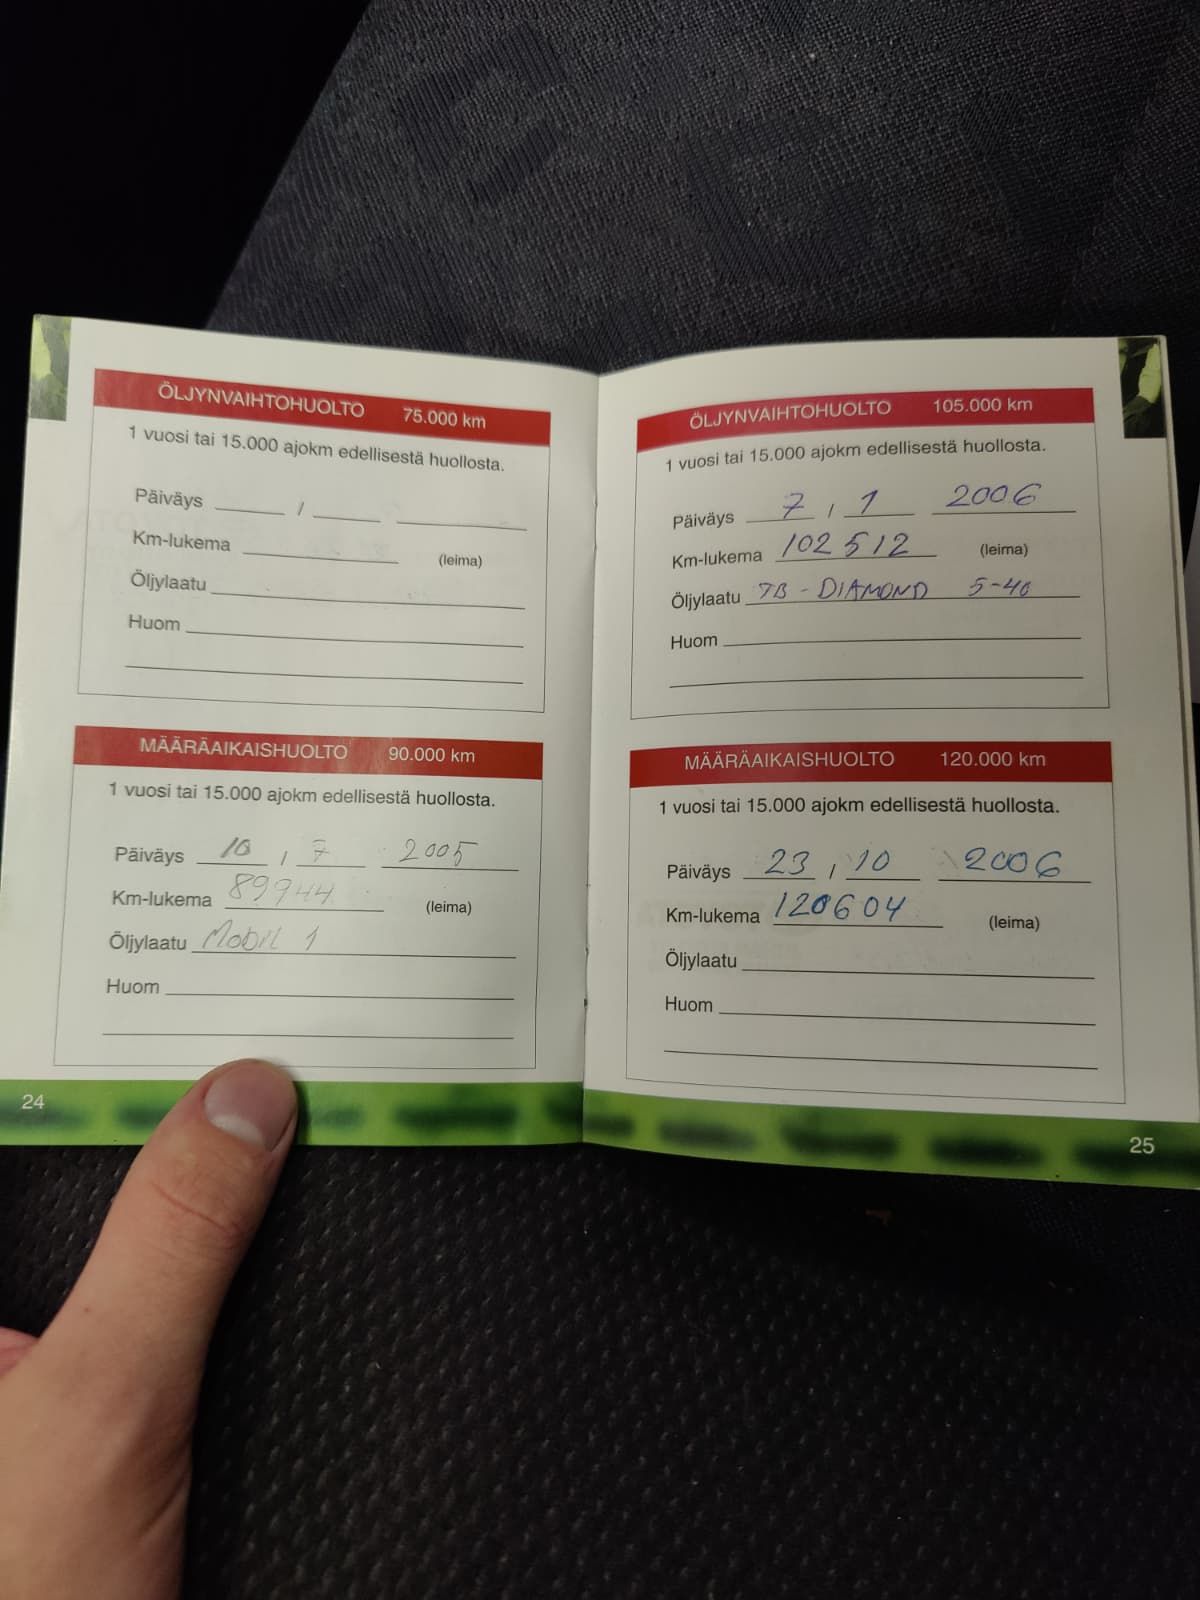 ÖLJYNVAIHTOHUOLTO 75.000 km
1 vuosi tai 15.000 ajokm edellisestä huollosta.
Päiväys /
Km-lukema (leima)
Öljylaatu
Huom
MÄÄRÄAIKAISHUOLTO 90.000 km
1 vuosi tai 15.000 ajokm edellisestä huollosta.
Päiväys 10 / 7 2005
Km-lukema 89944 (leima)
Öljylaatu Mobil 1
Huom
24
ÖLJYNVAIHTOHUOLTO 105.000 km
1 vuosi tai 15.000 ajokm edellisestä huollosta.
Päiväys 7 / 1 2006
Km-lukema 102512 (leima)
Öljylaatu TB - DIAMOND 5-40
Huom
MÄÄRÄAIKAISHUOLTO 120.000 km
1 vuosi tai 15.000 ajokm edellisestä huollosta.
Päiväys 23 / 10 2006
Km-lukema 120604 (leima)
Öljylaatu
Huom
25